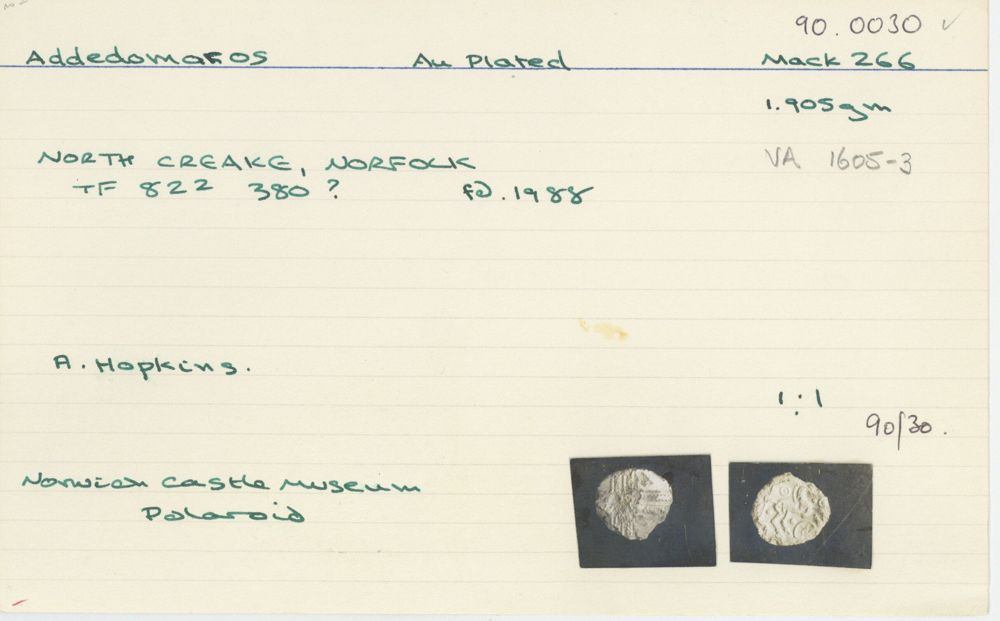 90.0030 ✓
Addedomaros Au Plated Mack 266
1.905gm
NORTH CREAKE, NORFOLK VA 1605-3
TF 822 380 ? fd. 1988
A. Hopkins.
1:1
90/30.
Norwich Castle Museum
Polaroid